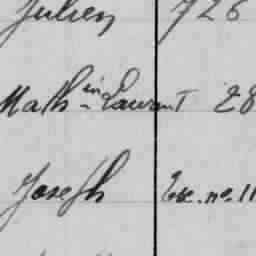 Julien 726
Math-in-Laurent 28
Joseph Esc. no. 11